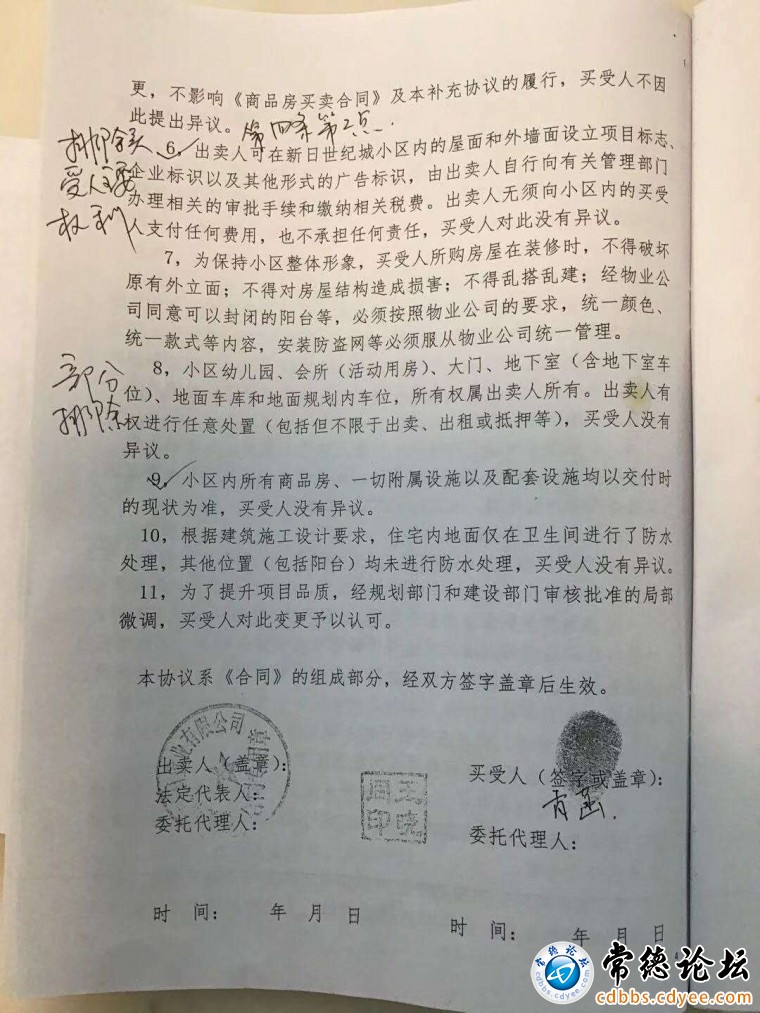 更，不影响《商品房买卖合同》及本补充协议的履行，买受人不因
此提出异议。第四条第2点.
排除
受人主要
权利
6，出卖人可在新日世纪城小区内的屋面和外墙面设立项目标志、
企业标识以及其他形式的广告标识，由出卖人自行向有关管理部门
办理相关的审批手续和缴纳相关税费。出卖人无须向小区内的买受
人支付任何费用，也不承担任何责任，买受人对此没有异议。
7，为保持小区整体形象，买受人所购房屋在装修时，不得破坏
原有外立面；不得对房屋结构造成损害；不得乱搭乱建；经物业公
司同意可以封闭的阳台等，必须按照物业公司的要求，统一颜色、
统一款式等内容，安装防盗网等必须服从物业公司统一管理。
部分
排除
8，小区幼儿园、会所（活动用房）、大门、地下室（含地下室车
位）、地面车库和地面规划内车位，所有权属出卖人所有。出卖人有
权进行任意处置（包括但不限于出卖、出租或抵押等），买受人没有
异议。
9，小区内所有商品房、一切附属设施以及配套设施均以交付时
的现状为准，买受人没有异议。
10，根据建筑施工设计要求，住宅内地面仅在卫生间进行了防水
处理，其他位置（包括阳台）均未进行防水处理，买受人没有异议。
11，为了提升项目品质，经规划部门和建设部门审核批准的局部
微调，买受人对此变更予以认可。
本协议系《合同》的组成部分，经双方签字盖章后生效。
业有限公司
出卖人（盖章）：
法定代表人：
委托代理人：
周王
印晓
买受人（签字或盖章）：
肖
委托代理人：
时 间： 年 月 日
时 间： 年 月 日
常德论坛
cdbbs.cdyee.com